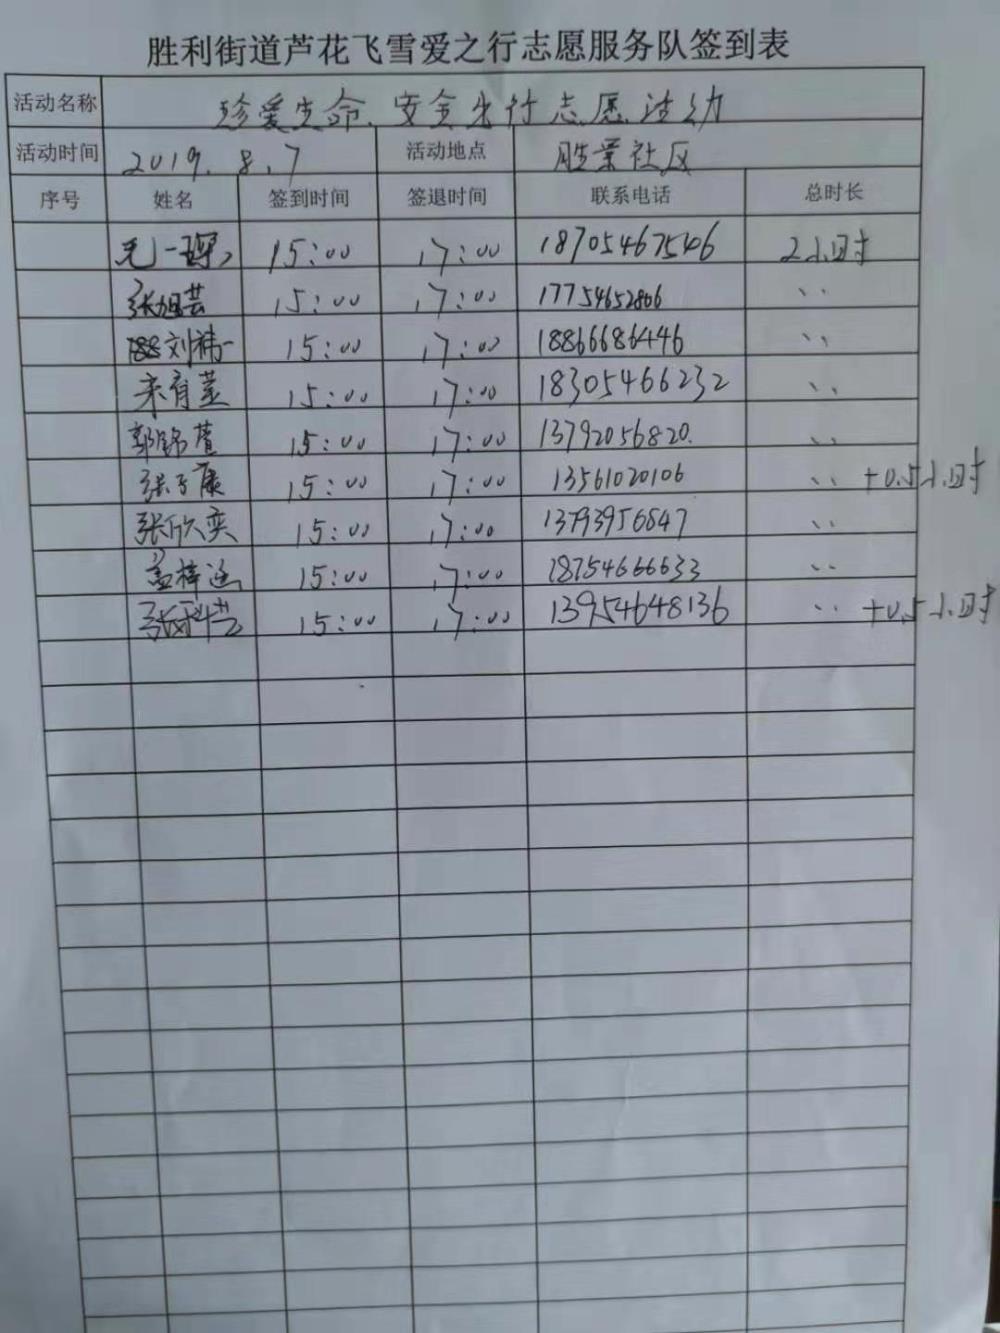 胜利街道芦花飞雪爱之行志愿服务队签到表
活动名称 珍爱生命、安全出行志愿活动
活动时间 2019.8.7 活动地点 胜景社区
序号 姓名 签到时间 签退时间 联系电话 总时长
毛一琛 15:00 17:00 18705467546 2小时
张旭芸 15:00 17:00 17754652806 、、
刘祎一 15:00 17:00 18866686446 、、
宋育萱 15:00 17:00 18305466232 、、
郭锦萱 15:00 17:00 13792056820. 、、
张子康 15:00 17:00 13561020106 、、 +0.5小时
张欣奕 15:00 17:00 13793956847 、、
孟梓涵 15:00 17:00 18754666633 、、
15:00 17:00 13954648136 、、 +0.5小时